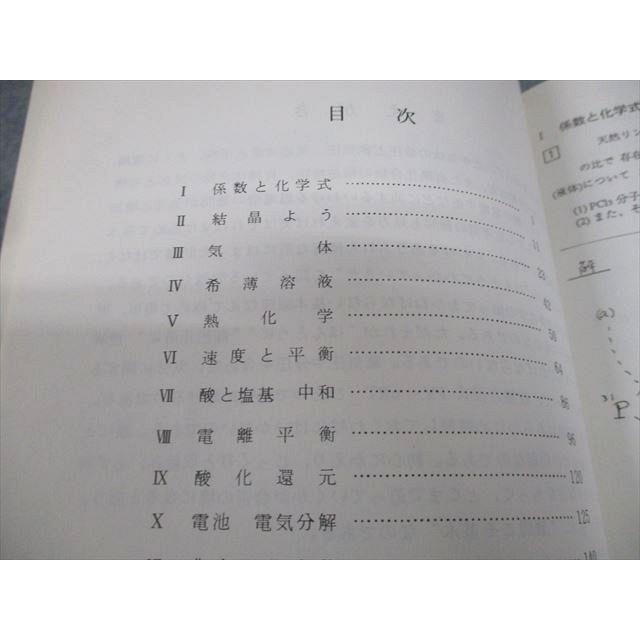 目次
I 係数と化学式 1
II 結晶よう 11
III 気体 23
IV 希薄溶液 42
V 熱化学 50
VI 速度と平衡 64
VII 酸と塩基 中和 86
VIII 電離平衡 96
IX 酸化還元 120
X 電池 電気分解 125
140
I 係数と化学式
1 天然リン
の比で 存在
(液体)について
(1) PCl₃ 分子
(2) また、そ
解
(a)